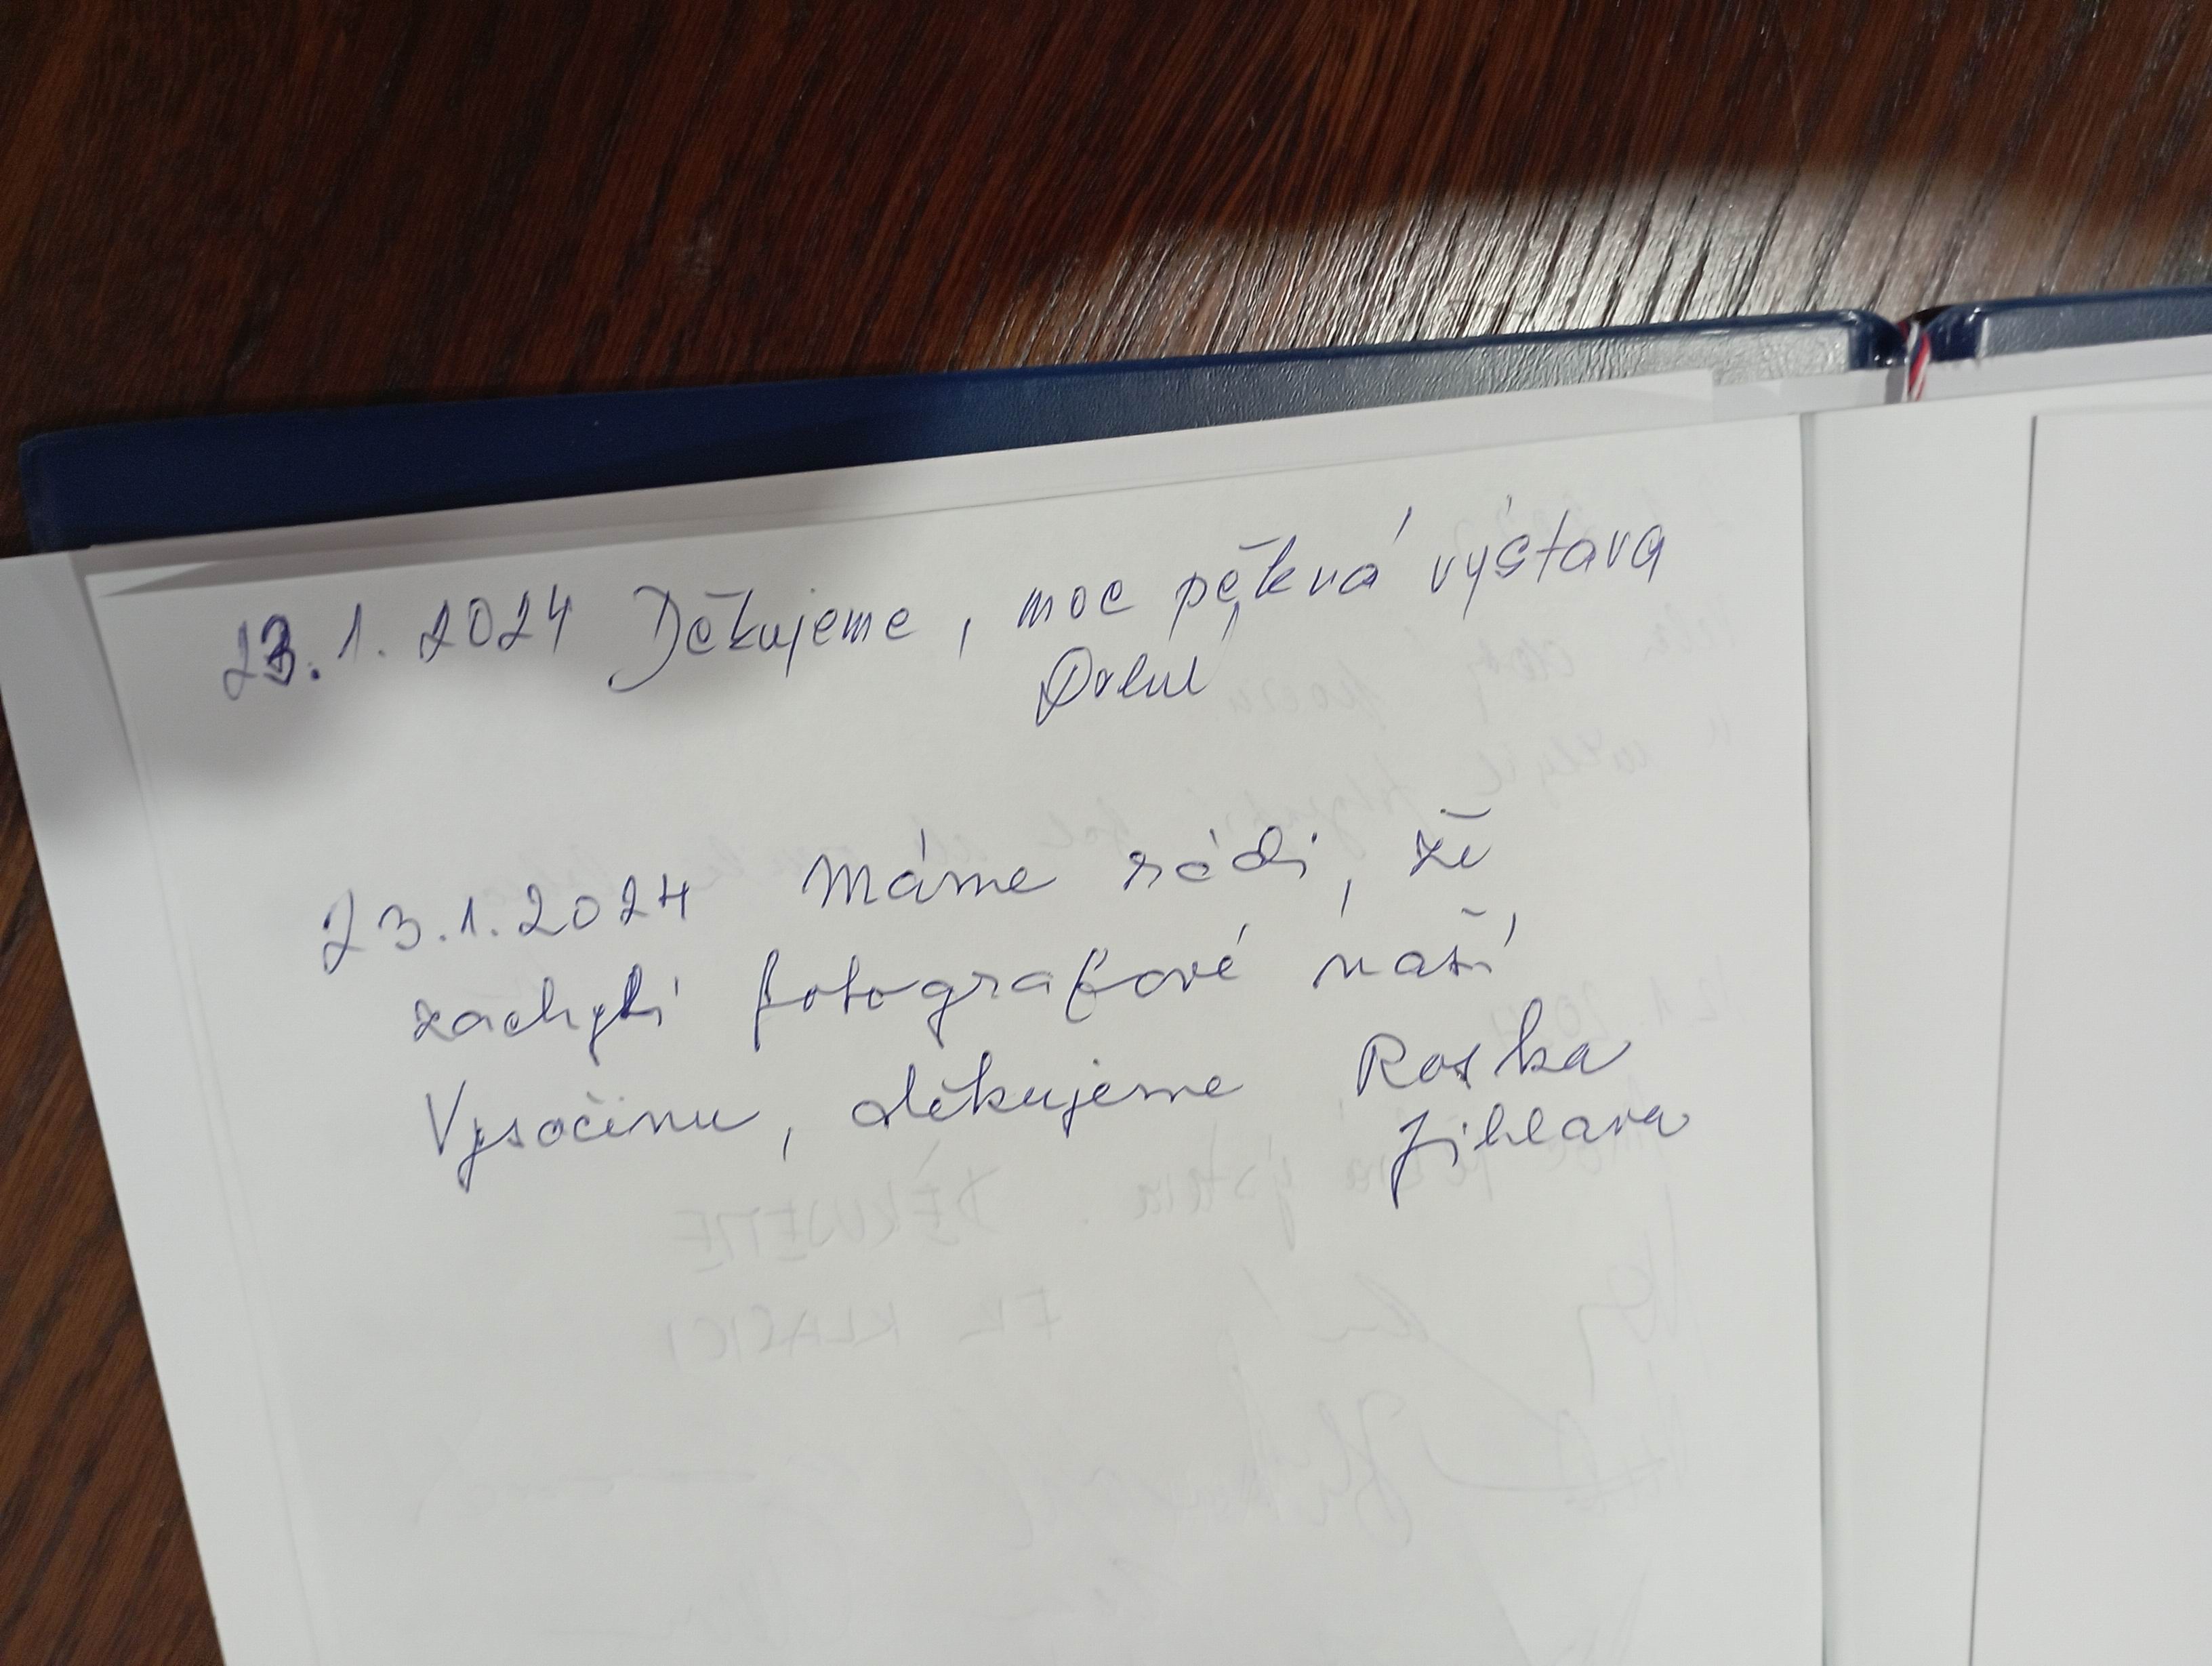 23.1.2024 Děkujeme, moc pěkná výstava
23.1.2024 Máme rádi, že
zachytí fotografové naší
Vysočinu, děkujeme Roska
Jihlava
DĚKUJEME